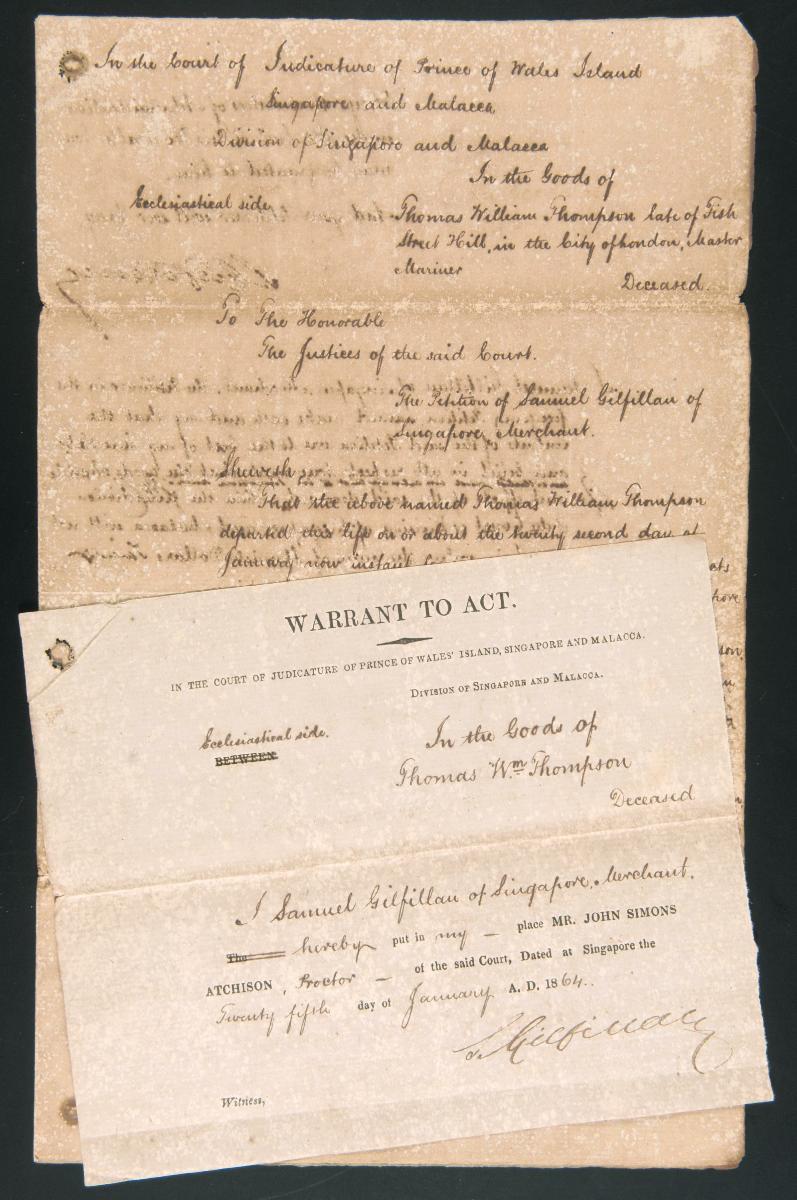 In the Court of Judicature of Prince of Wales Island
Singapore and Malacca
Division of Singapore and Malacca
In the Goods of
Ecclesiastical side
Thomas William Thompson late of Fish
Street Hill, in the City of London, Master
Mariner
Deceased.
To The Honorable
The Justices of the said Court.
The Petition of Samuel Gilfillan of
Singapore, Merchant.
Sheweth
That the above named Thomas William Thompson
departed this life on or about the twenty second day of
January now instant
WARRANT TO ACT.
IN THE COURT OF JUDICATURE OF PRINCE OF WALES' ISLAND, SINGAPORE AND MALACCA.
DIVISION OF SINGAPORE AND MALACCA.
Ecclesiastical side.
BETWEEN
In the Goods of
Thomas Wm Thompson
Deceased
I Samuel Gilfillan of Singapore, Merchant.
The hereby put in my — place MR. JOHN SIMONS
ATCHISON, Proctor — of the said Court, Dated at Singapore the
Twenty fifth day of January A. D. 1864.
S. Gilfillan
Witness,